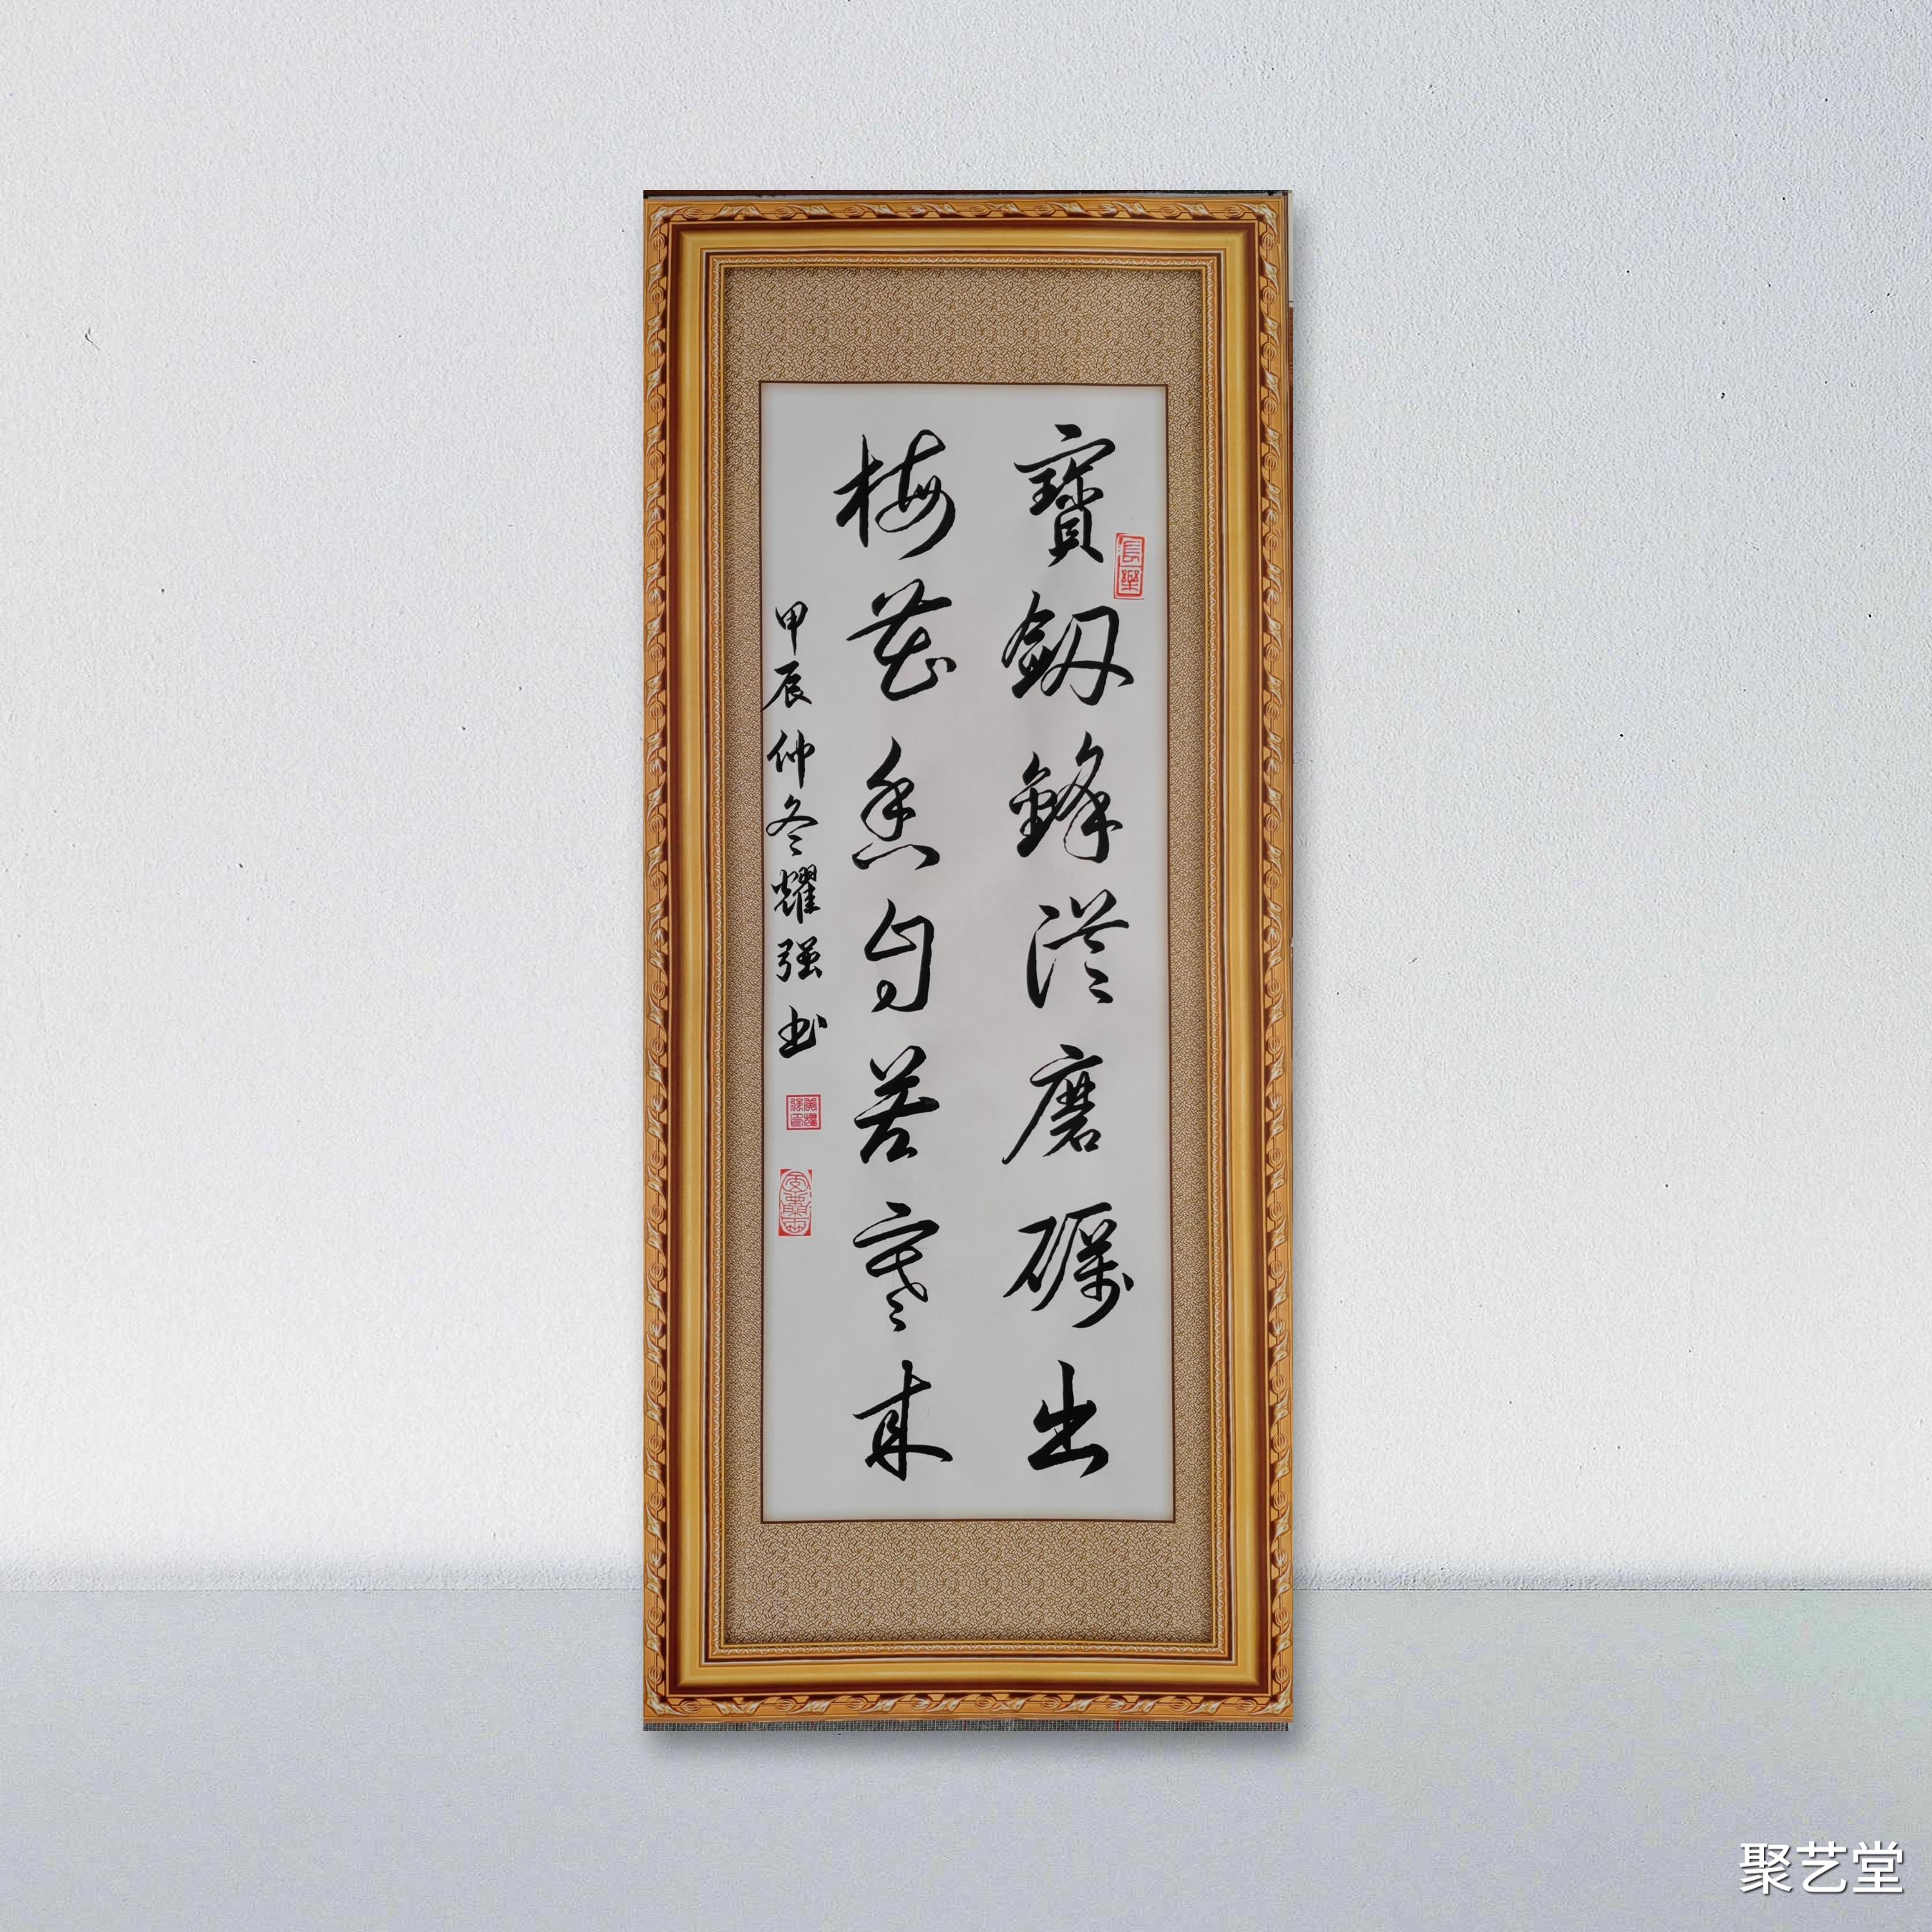 寶劔鋒從磨礪出
梅花香自苦寒來
甲辰仲冬耀强书
長樂
聚艺堂